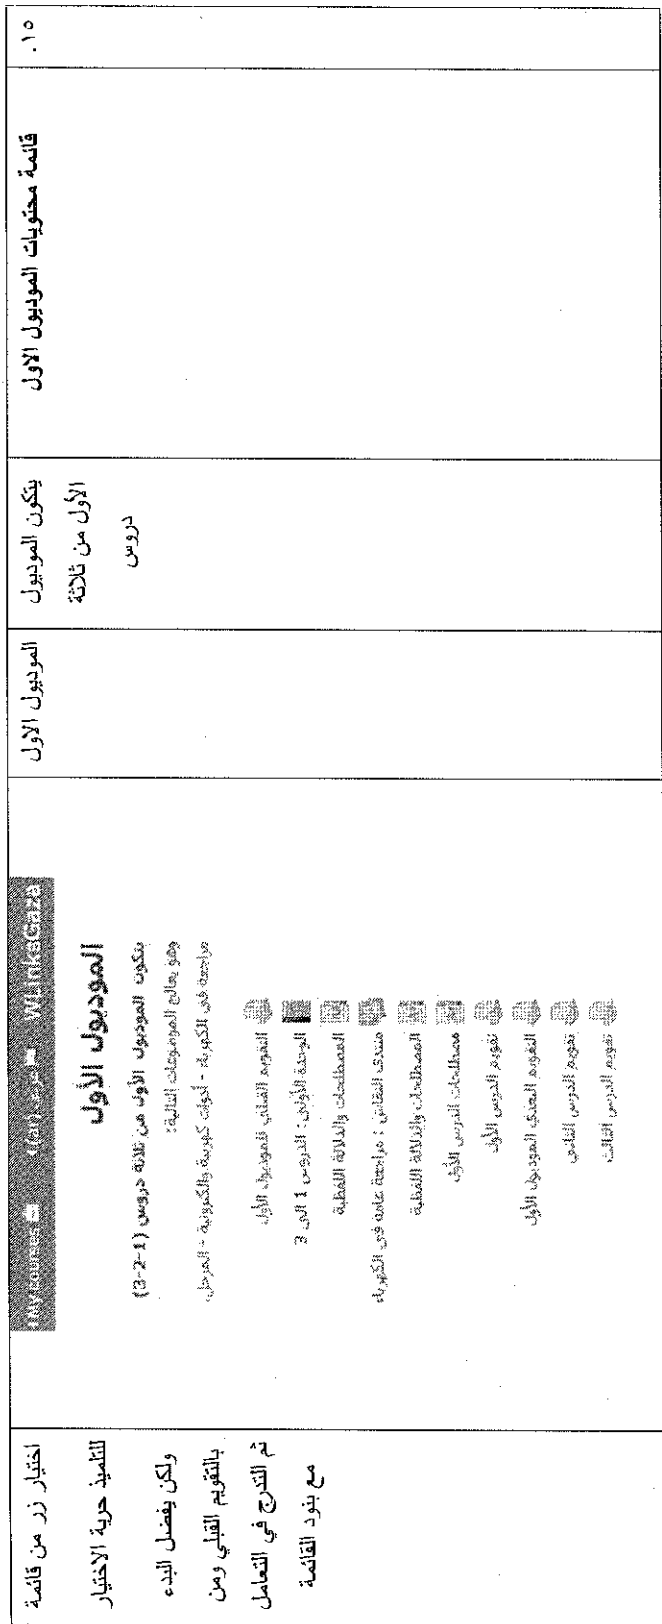 ١٥.
قائمة محتويات الموديول الاول
يتكون الموديول
الأول من ثلاثة
دروس
الموديول الاول
الموديول الأول
يتكون الموديول الأول من ثلاثة دروس (1-2-3)
وهو يعالج الموضوعات التالية:
مراجعة في الكهرباء - أدوات كهربية والكترونية - المرحل.
التقويم القبلي للموديول الأول
الوحدة الأولى: الدروس 1 الى 3
المصطلحات والدلالة اللفظية
منتدى النقاش : مراجعة عامة في الكهرباء
المصطلحات والدلالة اللفظية
مصطلحات الدرس الأول
تقويم الدرس الأول
التقويم البعدي الموديول الأول
تقويم الدرس الثاني
تقويم الدرس الثالث
اختيار زر من قائمة
للتلميذ حرية الاختيار
ولكن يفضل البدء
بالتقويم القبلي ومن
ثم التدرج في التعامل
مع بنود القائمة